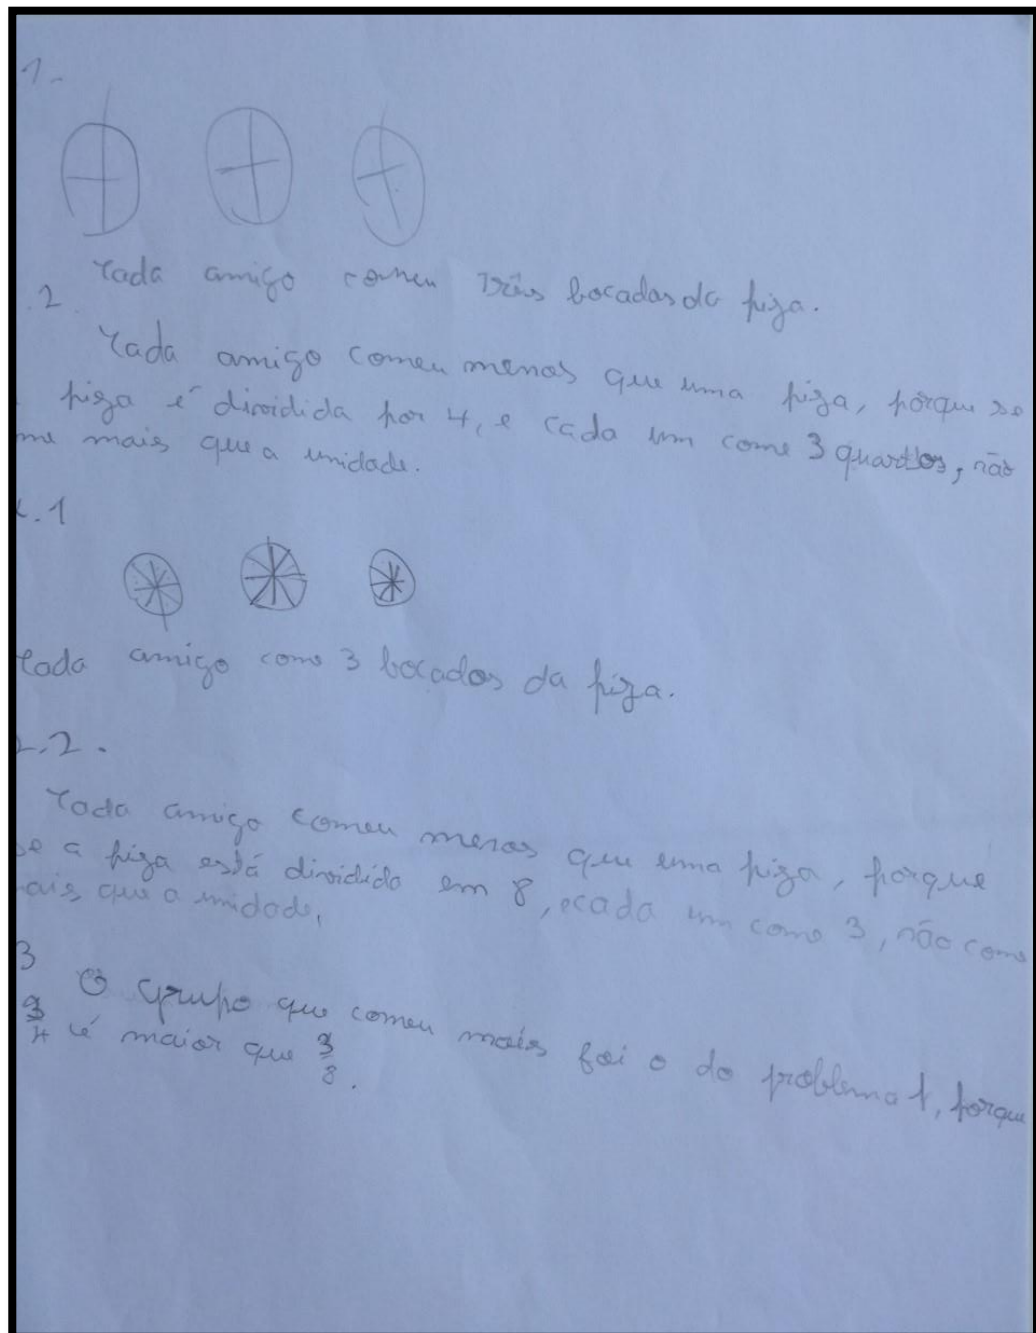 1-
Cada amigo comeu três bocadas da piza.
.2
Cada amigo comeu menos que uma piza, porque se
piza é dividida por 4, e cada um come 3 quartos, não
me mais que a unidade.
2.1
Cada amigo come 3 bocados da piza.
2.2.
Cada amigo comeu menos que uma piza, porque
se a piza está dividida em 8, e cada um come 3, não come
ais que a unidade,
3
O grupo que comeu mais foi o do problema 1, porque
3/4 é maior que 3/8.